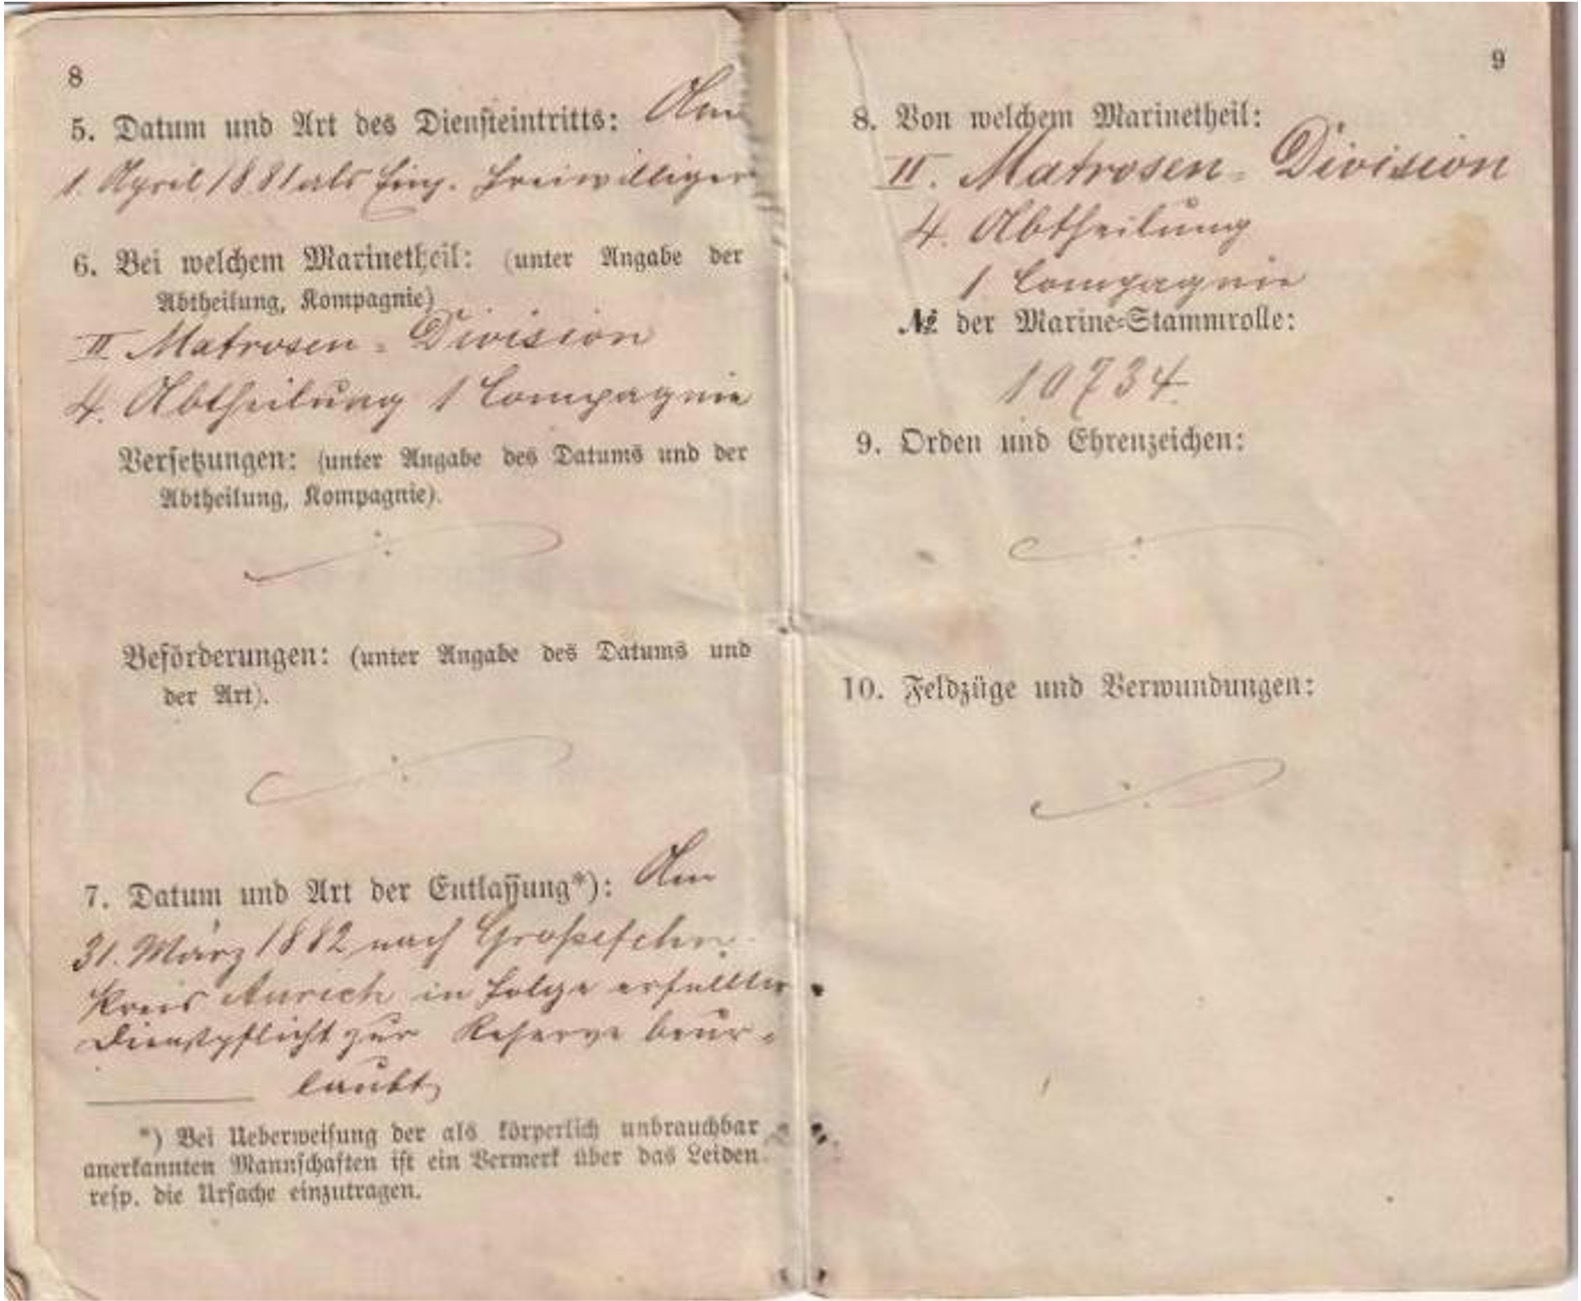 8
5. Datum und Art des Diensteintritts: Am
1. April 1881 als Einj. Freiwilliger
6. Bei welchem Marinetheil: (unter Angabe der
Abtheilung, Kompagnie)
II Matrosen-Division
4. Abtheilung 1 Compagnie
Versetzungen: (unter Angabe des Datums und der
Abtheilung, Kompagnie).
Beförderungen: (unter Angabe des Datums und
der Art).
7. Datum und Art der Entlassung*): Am
31. März 1882 nach Großefehn
Kreis Aurich in Folge erfüllter
Dienstpflicht zur Reserve beur-
laubt
*) Bei Ueberweisung der als körperlich unbrauchbar
anerkannten Mannschaften ist ein Vermerk über das Leiden
resp. die Ursache einzutragen.
9
8. Von welchem Marinetheil:
II. Matrosen-Division
4. Abtheilung
1 Compagnie
№ der Marine-Stammrolle:
10734
9. Orden und Ehrenzeichen:
10. Feldzüge und Verwundungen: